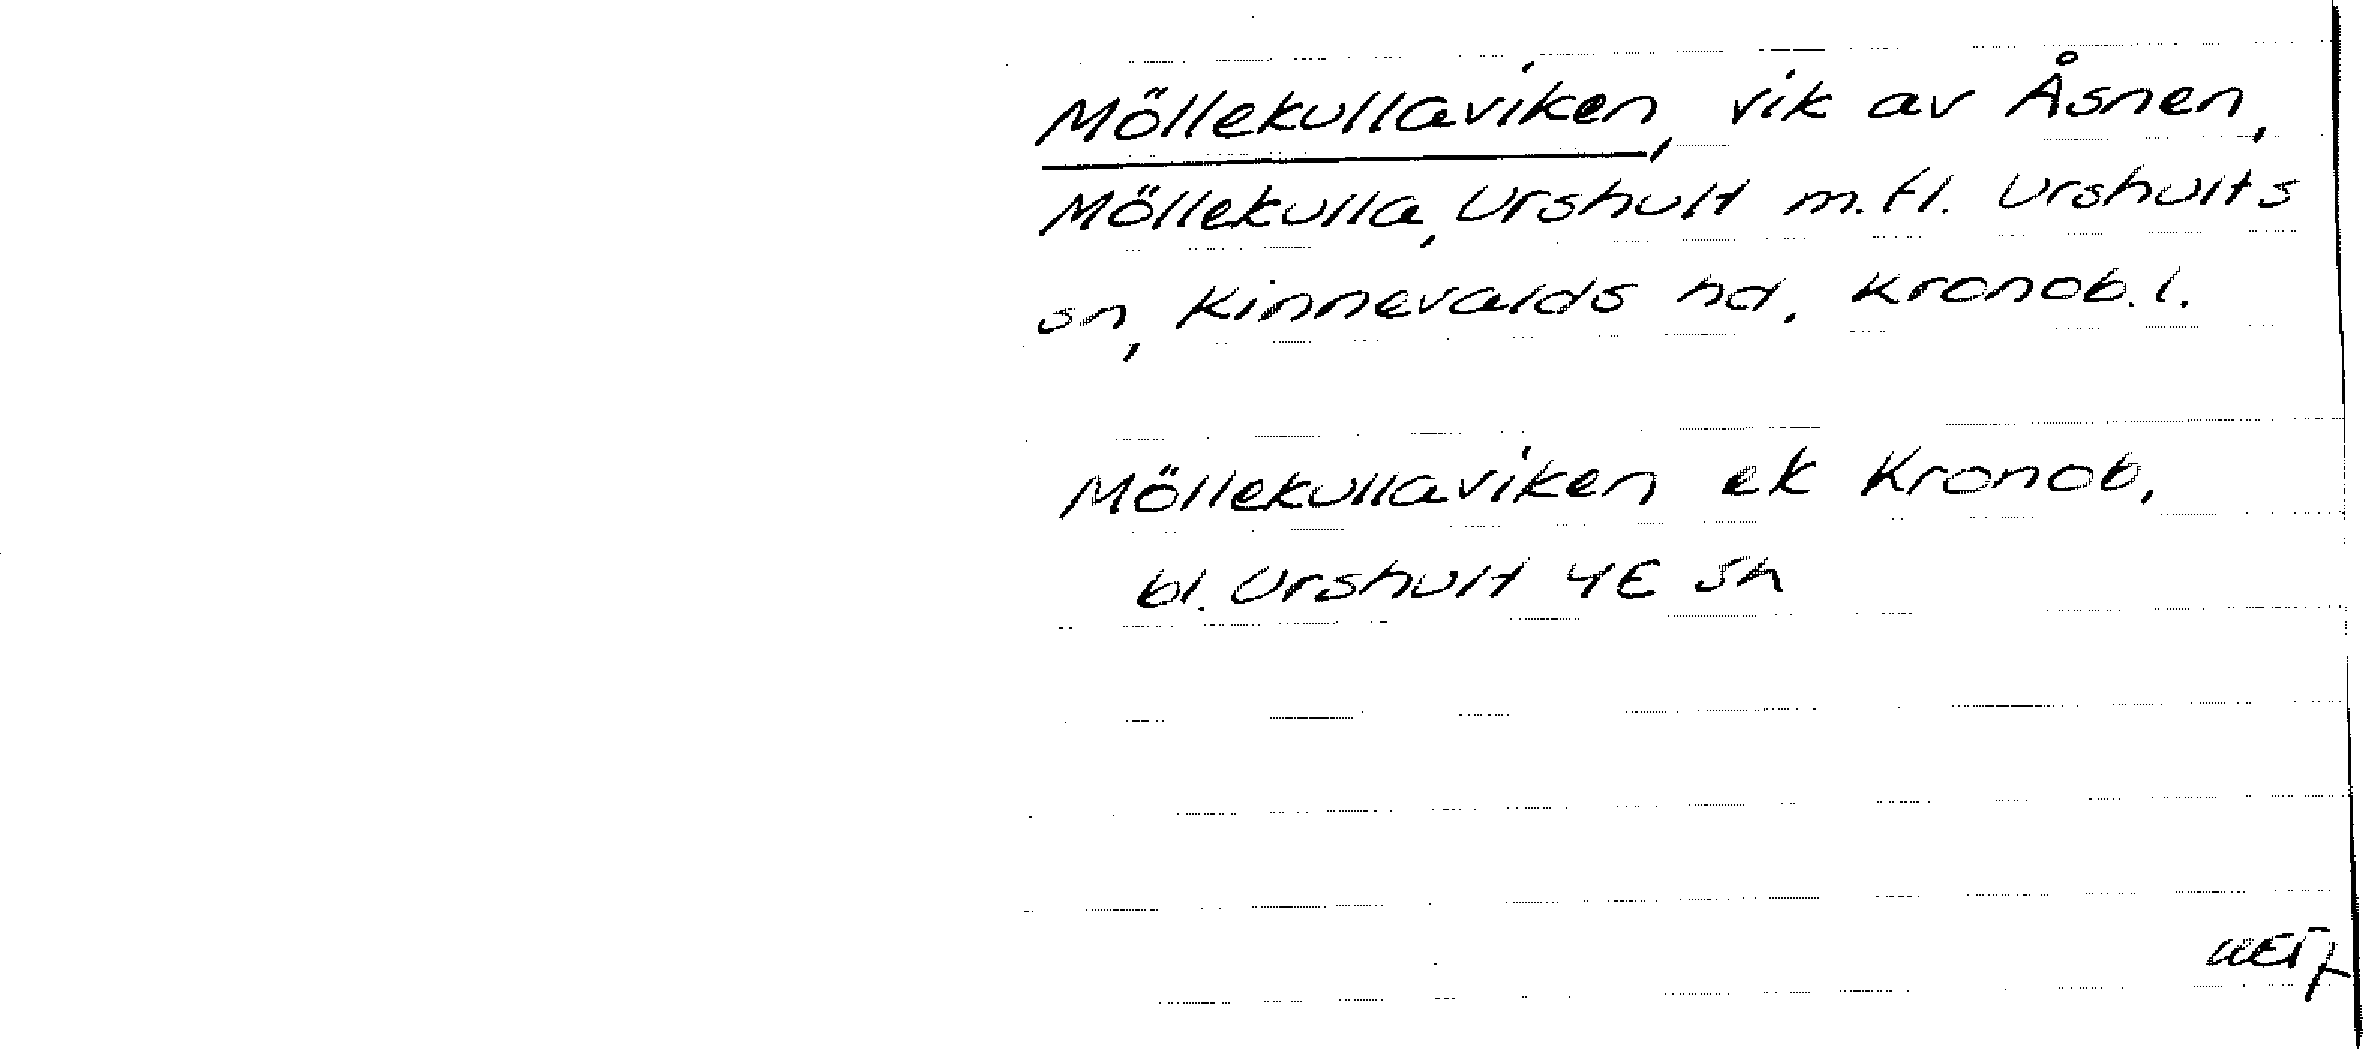 Möllekullaviken, vik av Åsnen,
Möllekulla, Urshult m.fl. Urshults
sn, Kinnevalds hd, Kronob. l.
Möllekullaviken ek Kronob,
bl. Urshult 4E 5h